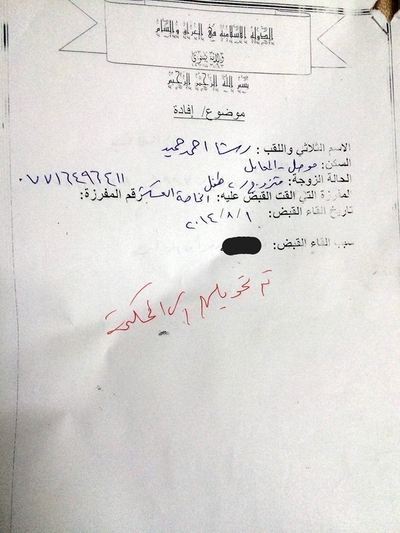 الدولة الاسلامية في العراق والشام
بسم الله الرحمن الرحيم
موضوع/ إفادة
الاسم الثلاثي واللقب : رشا احمد حميد
السكن: موصل -
الحالة الزوجة: متزوج / ٢ طفل ٠٧٧١٦٤٩٦٤١١
المفرزة التي القت القبض عليه: الخاصة العسكرية رقم المفرزة:
تاريخ القاء القبض: ٢٠١٤/٨/١
سبب القاء القبض:
تم تحويلهم الى المحكمة